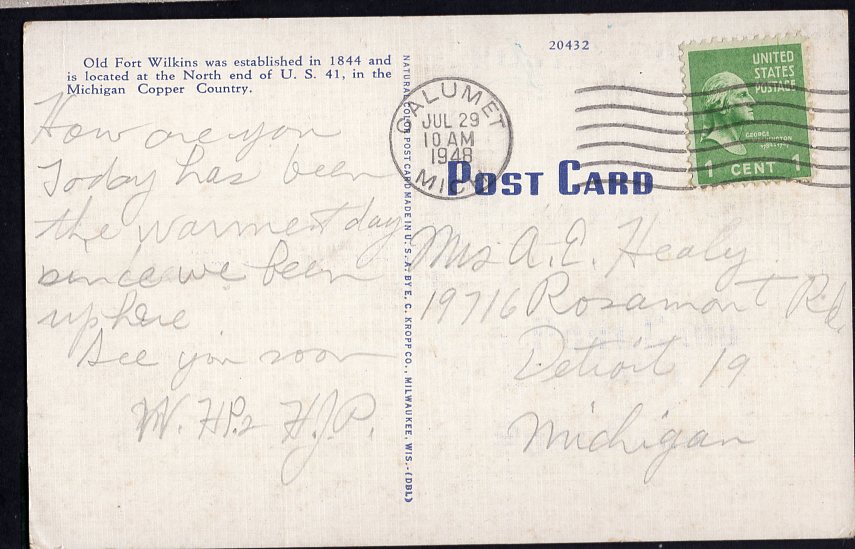 20432
Old Fort Wilkins was established in 1844 and
is located at the North end of U. S. 41, in the
Michigan Copper Country.
How are you
Today has been
the warmest day
since we been
up here
See you soon
W. H.P. & H.J.P.
NATURAL COLOR POST CARD MADE IN U. S. A. BY E. C. KROPP CO., MILWAUKEE, WIS.-(DBL)
CALUMET
JUL 29
10 AM
1948
MICH.
UNITED
STATES
POSTAGE
GEORGE
WASHINGTON
1 CENT 1
POST CARD
Mrs A. E. Healy
19716 Rosamont Rd
Detroit 19
Michigan